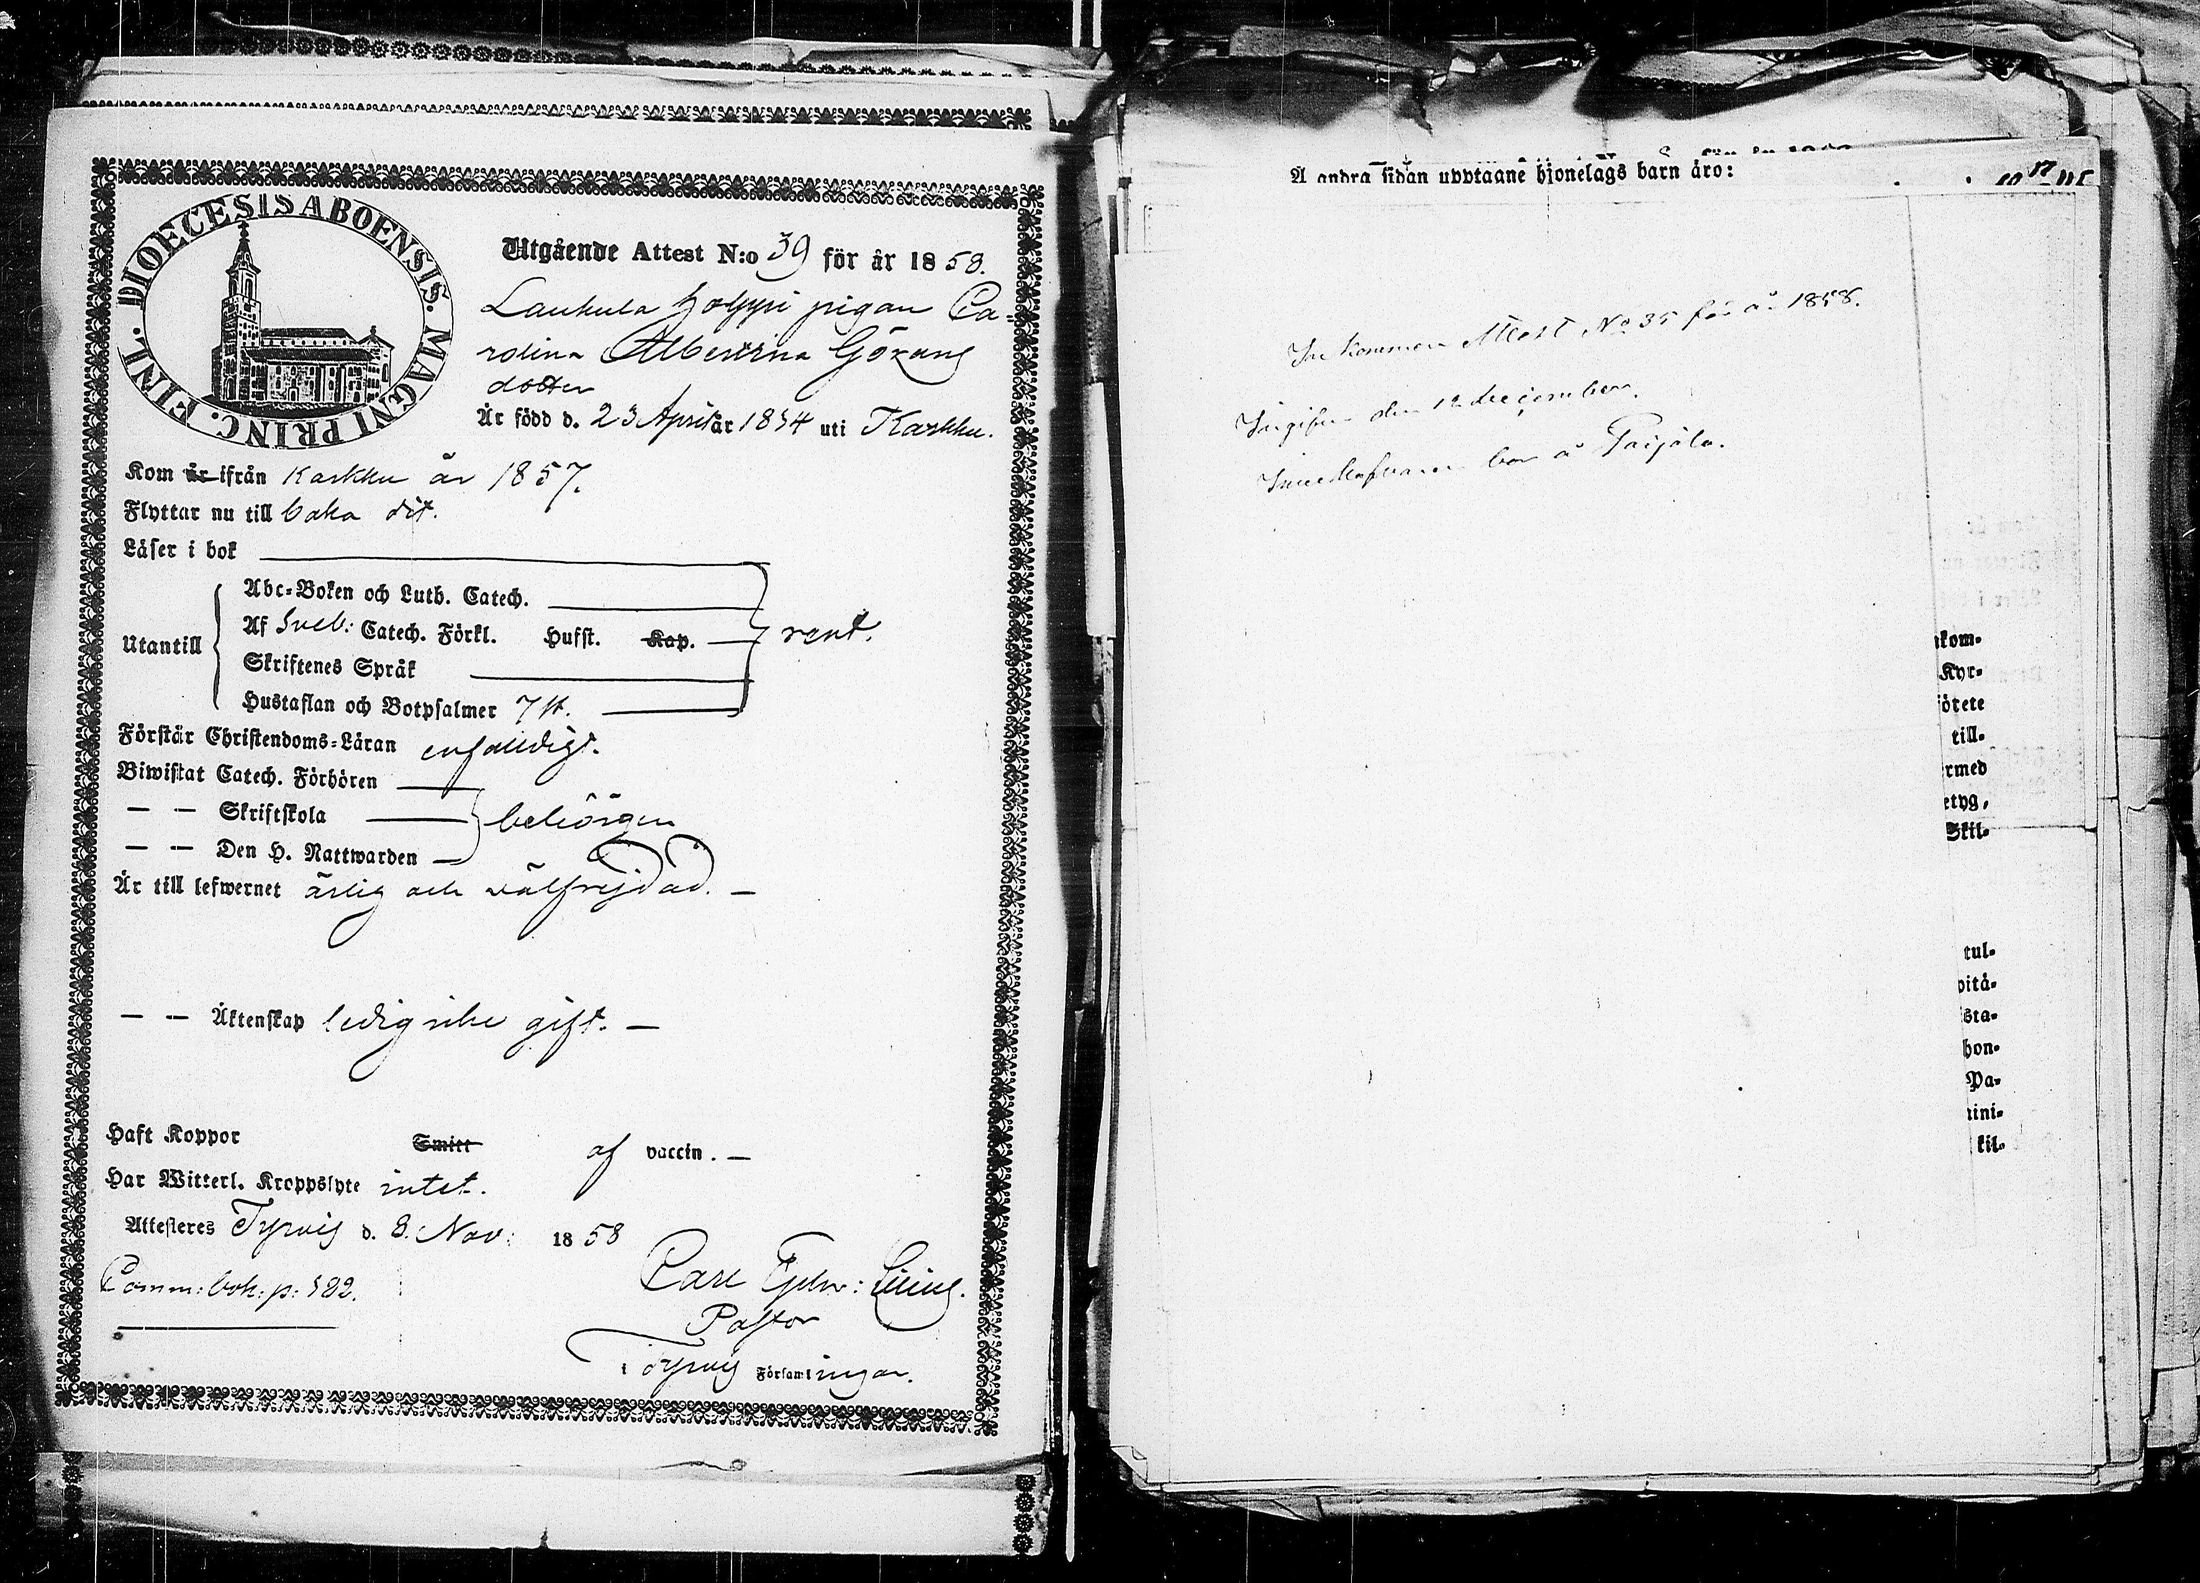 DIOECESIS ABOENSIS. MAGNI PRINC. FINL.
Utgående Attest N:o 39 för år 1858.
Laukula Holppi pigan Ca-
rolina Albertina Görans
dotter
Är född d. 23 April år 1834 uti Karkku.
Kom år ifrån Karkku år 1857.
Flyttar nu till baka dit.
Läser i bok
Abc-Boken och Luth. Catech.
Utantill
Af Sveb: Catech. Förkl. Hufst. Kap. rent.
Skriftenes Språk
Hustaflan och Botpsalmer 7 st.
Förstår Christendoms-Läran enfaldigt.
Biwistat Catech. Förhören
— — Skriftskola behörigen
— — Den H. Nattwarden
Är till lefwernet ärlig och välfrejdad. —
— — Äktenskap ledig icke gift. —
Haft Koppor Smitt af vaccin. —
Har Witterl. Kroppslyte intet.
Attesteres Tyrvis d. 8. Nov: 1858
Comm: bok: p: 582.
Carl Fredr: Lilius.
Pastor
i Tyrvis Församlingar.
Å andra sidan upptagne hjonelags barn äro:
Inkommen Attest No 35 för år 1858.
Ingifven den 12 december.
Innehafvaren bor å Paijala.
nkom-
Kyr-
ötete
till-
rmed
etyg,
Skil-
tul-
pitä-
sta-
hon-
Pa-
nini-
kil-